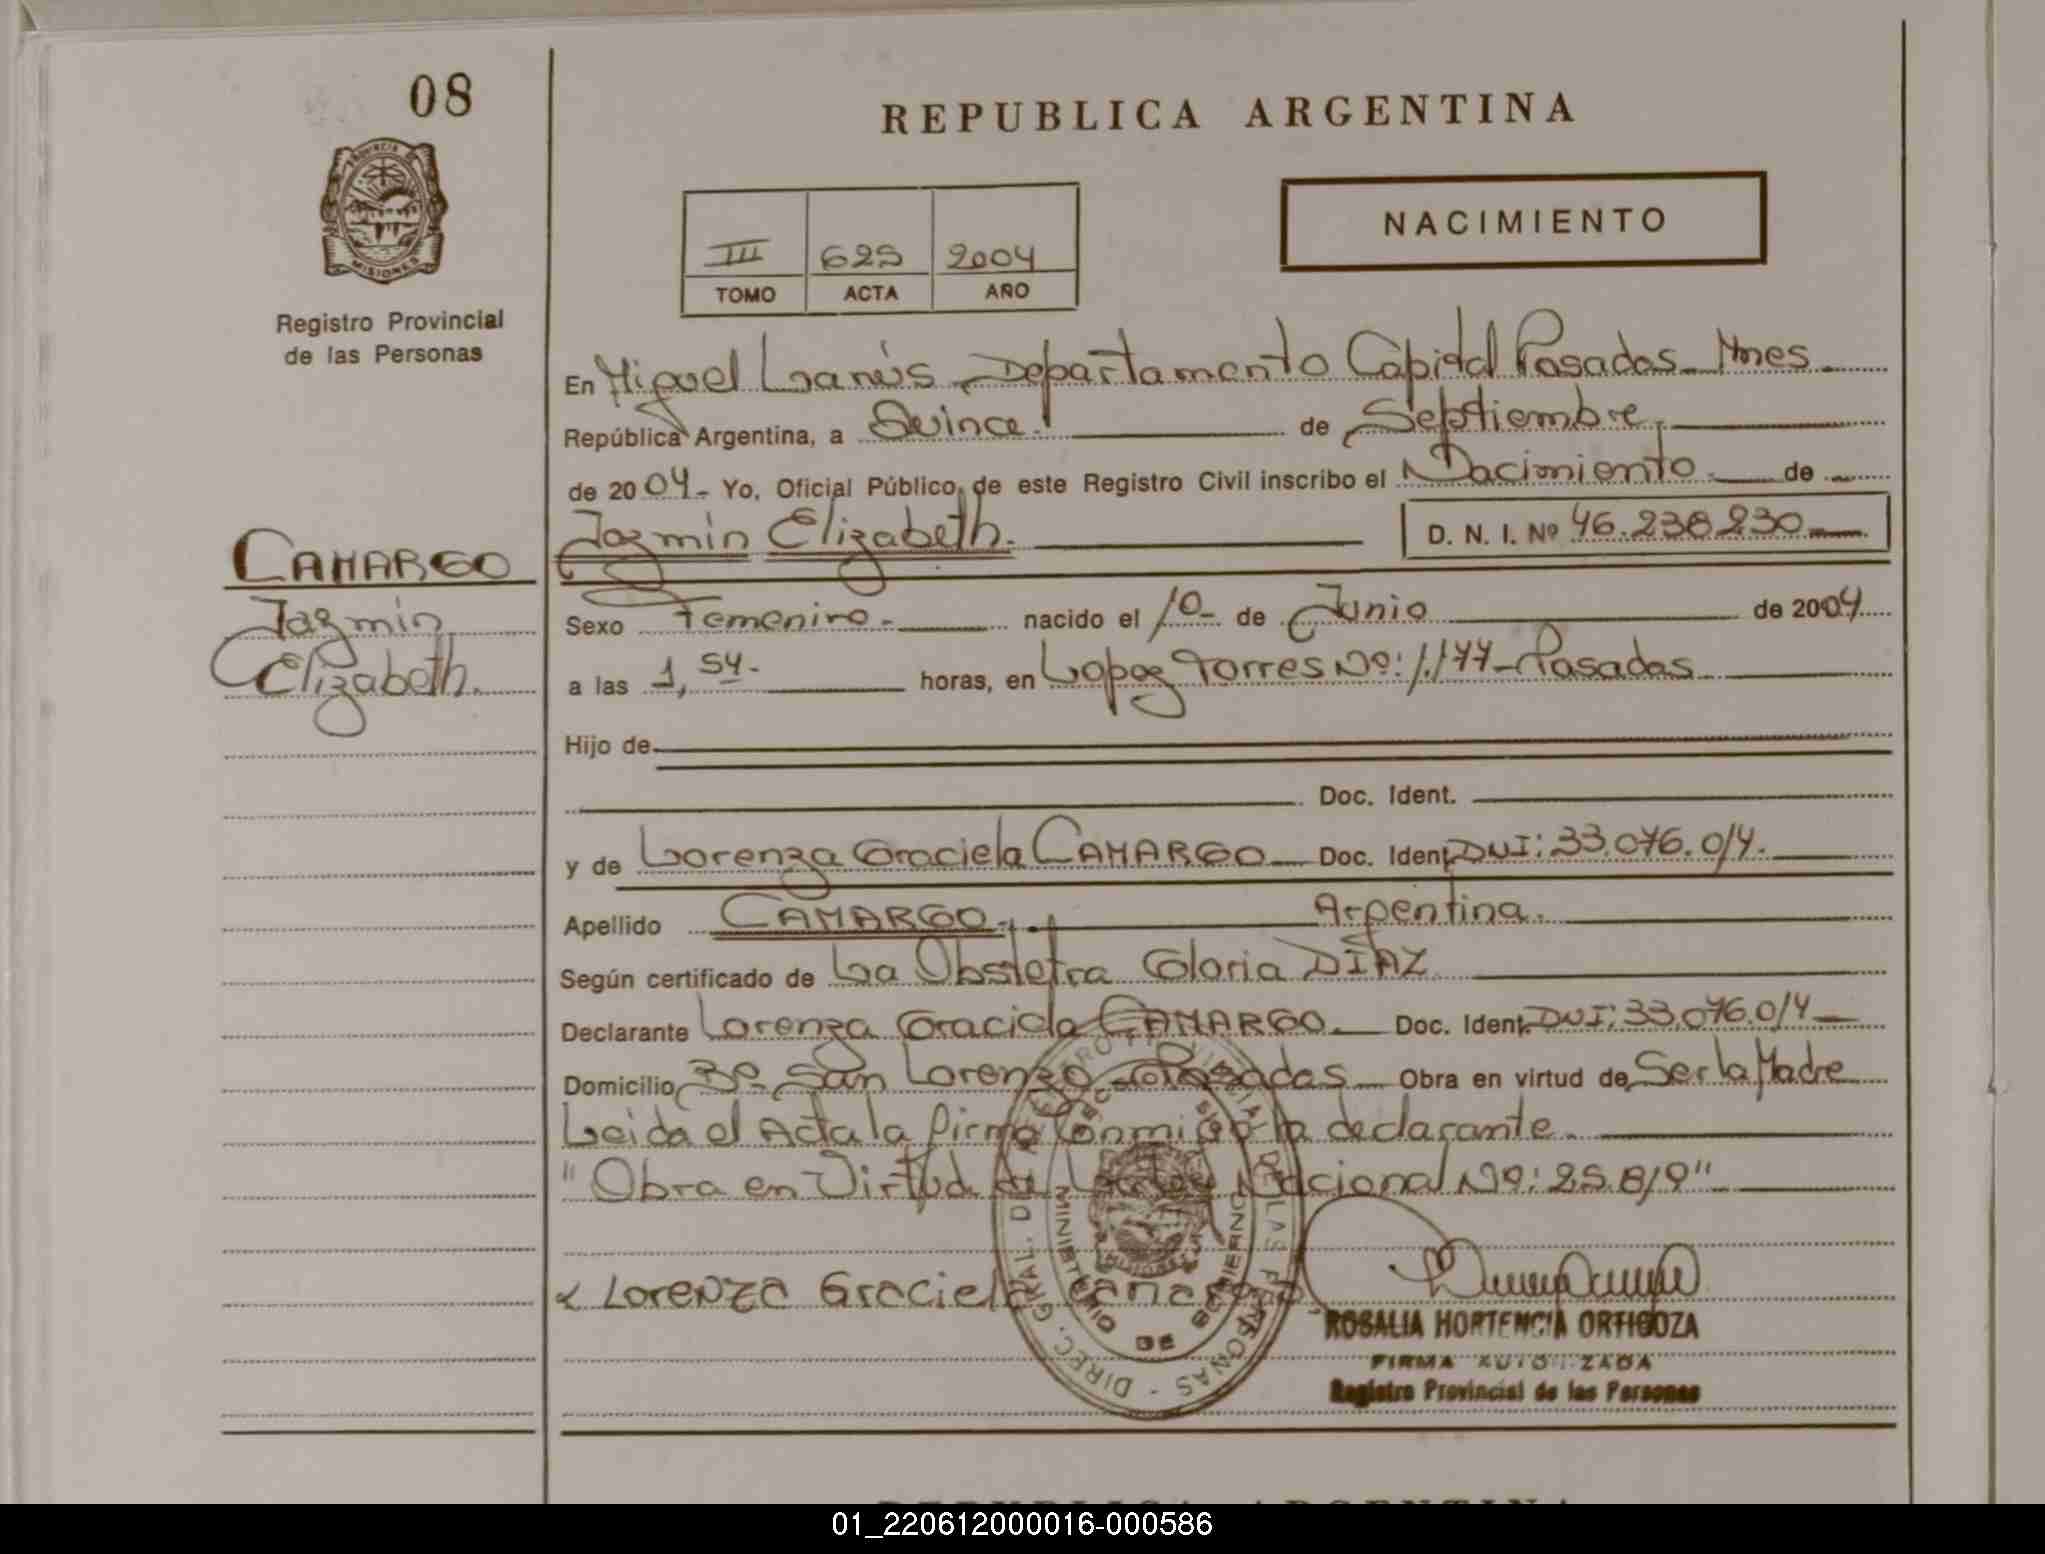 08
REPUBLICA ARGENTINA
PROVINCIA DE
MISIONES
Registro Provincial
de las Personas
NACIMIENTO
III 625 2004
TOMO ACTA AÑO
En Miguel Lanús Departamento Capital Posadas Mnes
República Argentina, a Quince. de Septiembre
de 2004- Yo, Oficial Público, de este Registro Civil inscribo el Nacimiento de
Jazmin Elizabeth. D. N. I. Nº 46.238.230
CAMARGO
Jazmin
Elizabeth.
Sexo Femenino- nacido el 10- de Junio de 2004
a las 1,54- horas, en Lopez Torres Nº: 1.177-Posadas
Hijo de
Doc. Ident.
y de Lorenza Graciela CAMARGO Doc. Ident. DNI: 33.076.014.
Apellido CAMARGO. Argentina.
Según certificado de La Obstetra Gloria DÍAZ
Declarante Lorenza Graciela CAMARGO. Doc. Ident. DNI: 33.076.014
Domicilio Bº San Lorenzo - Posadas Obra en virtud de Ser la Madre
Leida el Acta la firma Conmigo la declarante.
"Obra en Virtud de Nacional Nº: 25.819"
x LORENZA Graciela camargo
ROSALIA HORTENCIA ORTIGOZA
FIRMA AUTORIZADA
Registro Provincial de las Personas
DIREC. GRAL. DE REGISTRO PROVINCIAL DE LAS PERSONAS
MINISTERIO DE GOBIERNO
MISIONES
REPUBLICA ARGENTINA
01_220612000016-000586